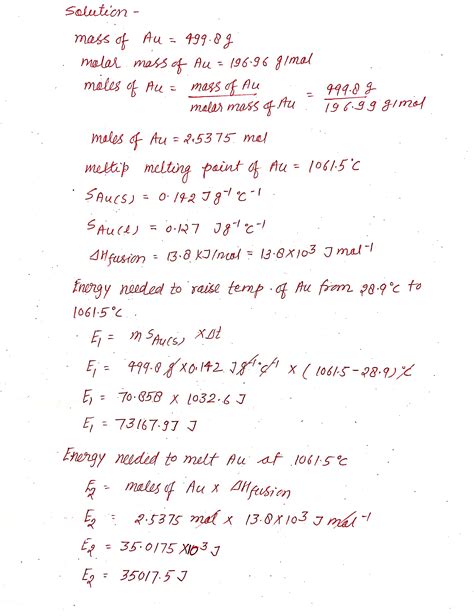 Solution -
mass of Au = 499.8 g
molar mass of Au = 196.96 g/mol
moles of Au = mass of Au / molar mass of Au = 499.8 g / 196.99 g/mol
moles of Au = 2.5375 mol
meltip melting point of Au = 1061.5°C
SAu(s) = 0.142 J g⁻¹ °C⁻¹
SAu(l) = 0.127 J g⁻¹ °C⁻¹
ΔHfusion = 13.8 KJ/mol = 13.8 X 10³ J mol⁻¹
Energy needed to raise temp. of Au from 28.9°C to
1061.5°C.
E₁ = m SAu(s) X Δt
E₁ = 499.8 g X 0.142 J g⁻¹ °C⁻¹ X (1061.5 - 28.9) °C
E₁ = 70.858 X 1032.6 J
E₁ = 73167.97 J
Energy needed to melt Au at 1061.5°C
E₂ = moles of Au X ΔHfusion
E₂ = 2.5375 mol X 13.8 X 10³ J mol⁻¹
E₂ = 35.0175 X 10³ J
E₂ = 35017.5 J